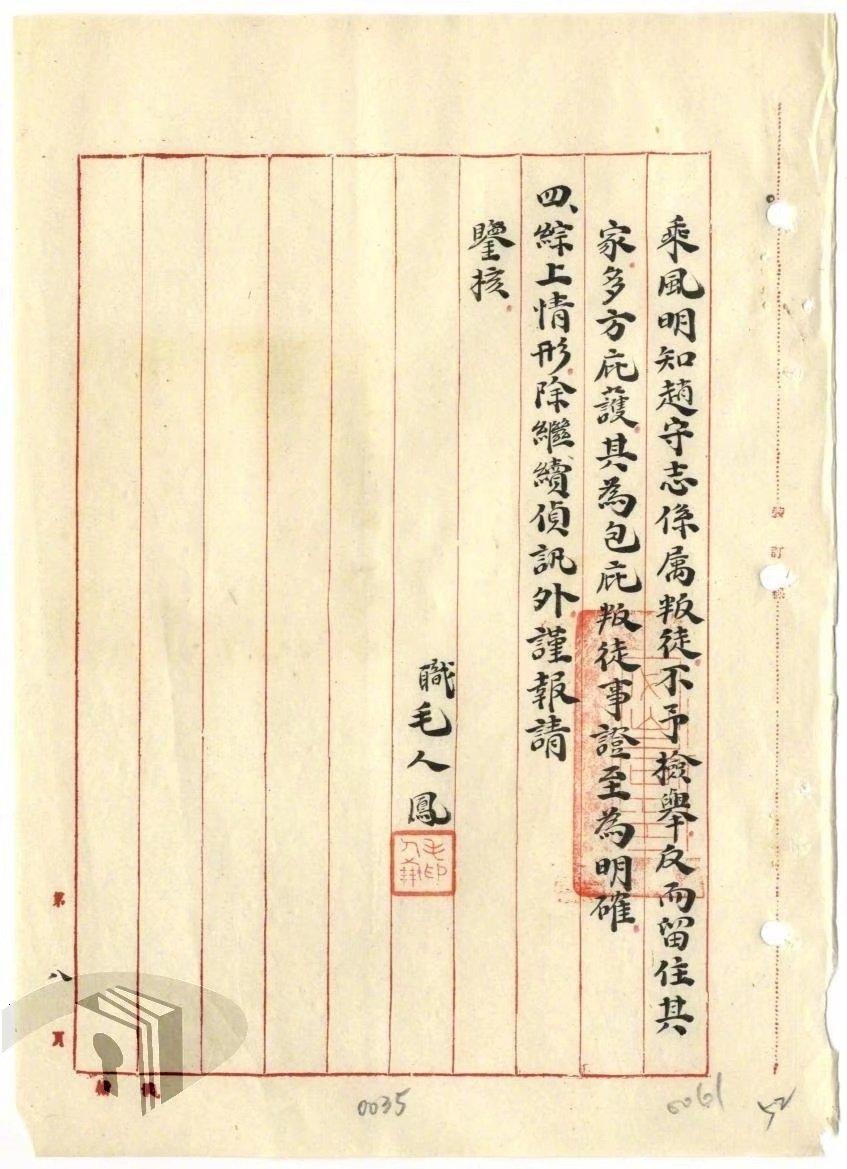 乘風明知趙守志係属叛徒不予檢舉反而留住其
家多方庇護其為包庇叛徒事證至為明確
四、綜上情形除繼續偵訊外謹報請
鑒核
職毛人鳳
毛人鳳印
裝訂線
第八頁
0035
0061
52